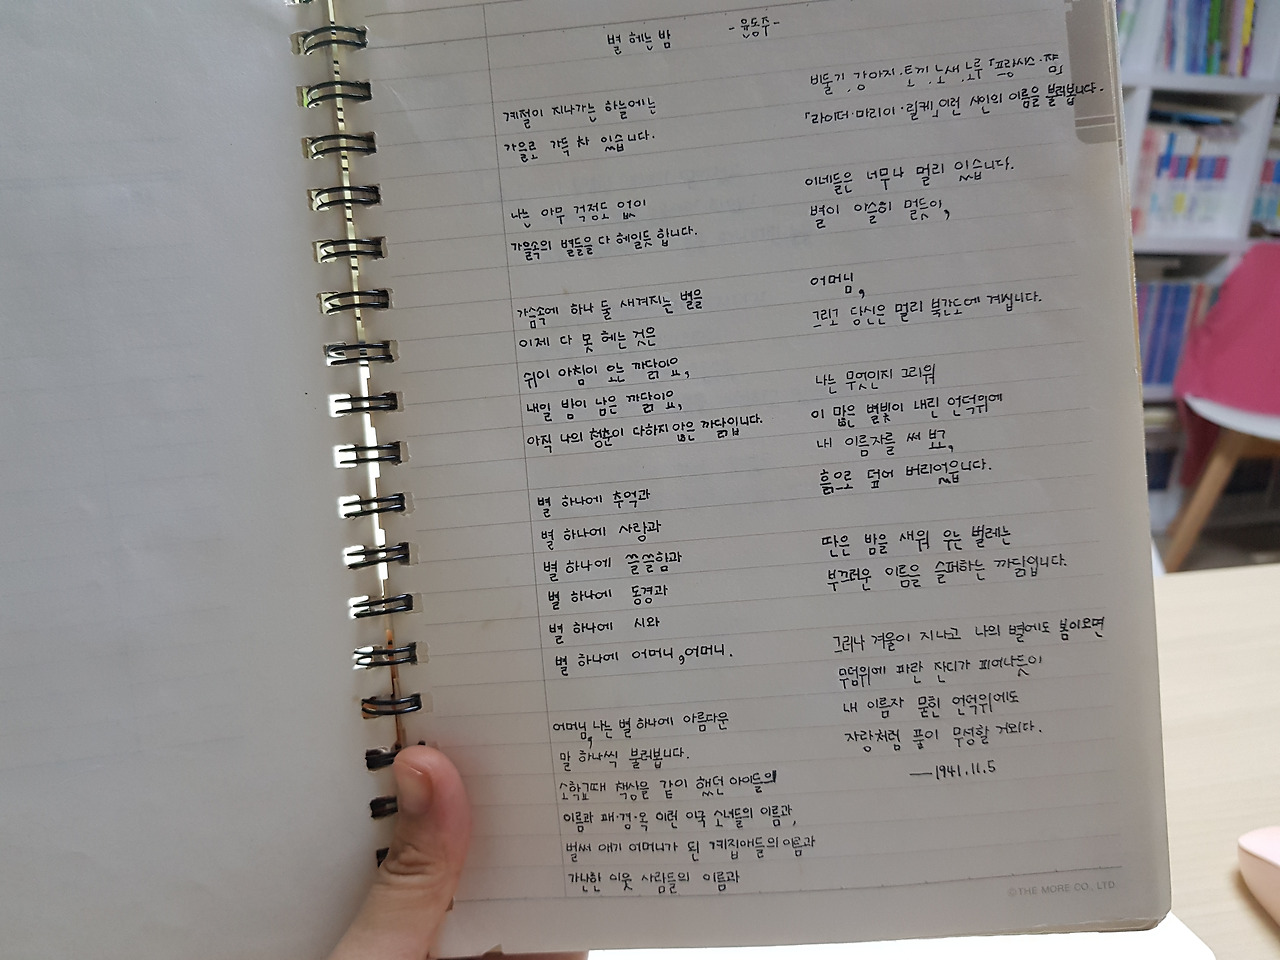 별 헤는 밤 - 윤동주 -
계절이 지나가는 하늘에는
가을로 가득 차 있습니다.
나는 아무 걱정도 없이
가을속의 별들을 다 헤일듯 합니다.
가슴속에 하나 둘 새겨지는 별을
이제 다 못 헤는 것은
쉬이 아침이 오는 까닭이요,
내일 밤이 남은 까닭이요,
아직 나의 청춘이 다하지 않은 까닭입니다.
별 하나에 추억과
별 하나에 사랑과
별 하나에 쓸쓸함과
별 하나에 동경과
별 하나에 시와
별 하나에 어머니, 어머니.
어머님, 나는 별 하나에 아름다운
말 하나씩 불러봅니다.
소학교때 책상을 같이 했던 아이들의
이름과 패·경·옥 이런 이국 소녀들의 이름과,
벌써 애기 어머니가 된 계집애들의 이름과
가난한 이웃 사람들의 이름과
비둘기, 강아지·토끼, 노새, 노루 「프랑시스·쟘」
「라이너·마리아·릴케」이런 시인의 이름을 불러봅니다.
이네들은 너무나 멀리 있습니다.
별이 아슬히 멀듯이,
어머님,
그리고 당신은 멀리 북간도에 계십니다.
나는 무엇인지 그리워
이 많은 별빛이 내린 언덕위에
내 이름자를 써 보고,
흙으로 덮어 버리었습니다.
딴은 밤을 새워 우는 벌레는
부끄러운 이름을 슬퍼하는 까닭입니다.
그러나 겨울이 지나고 나의 별에도 봄이오면
무덤위에 파란 잔디가 피어나듯이
내 이름자 묻힌 언덕위에도
자랑처럼 풀이 무성할 거외다.
—1941.11.5
©THE MORE CO., LTD.